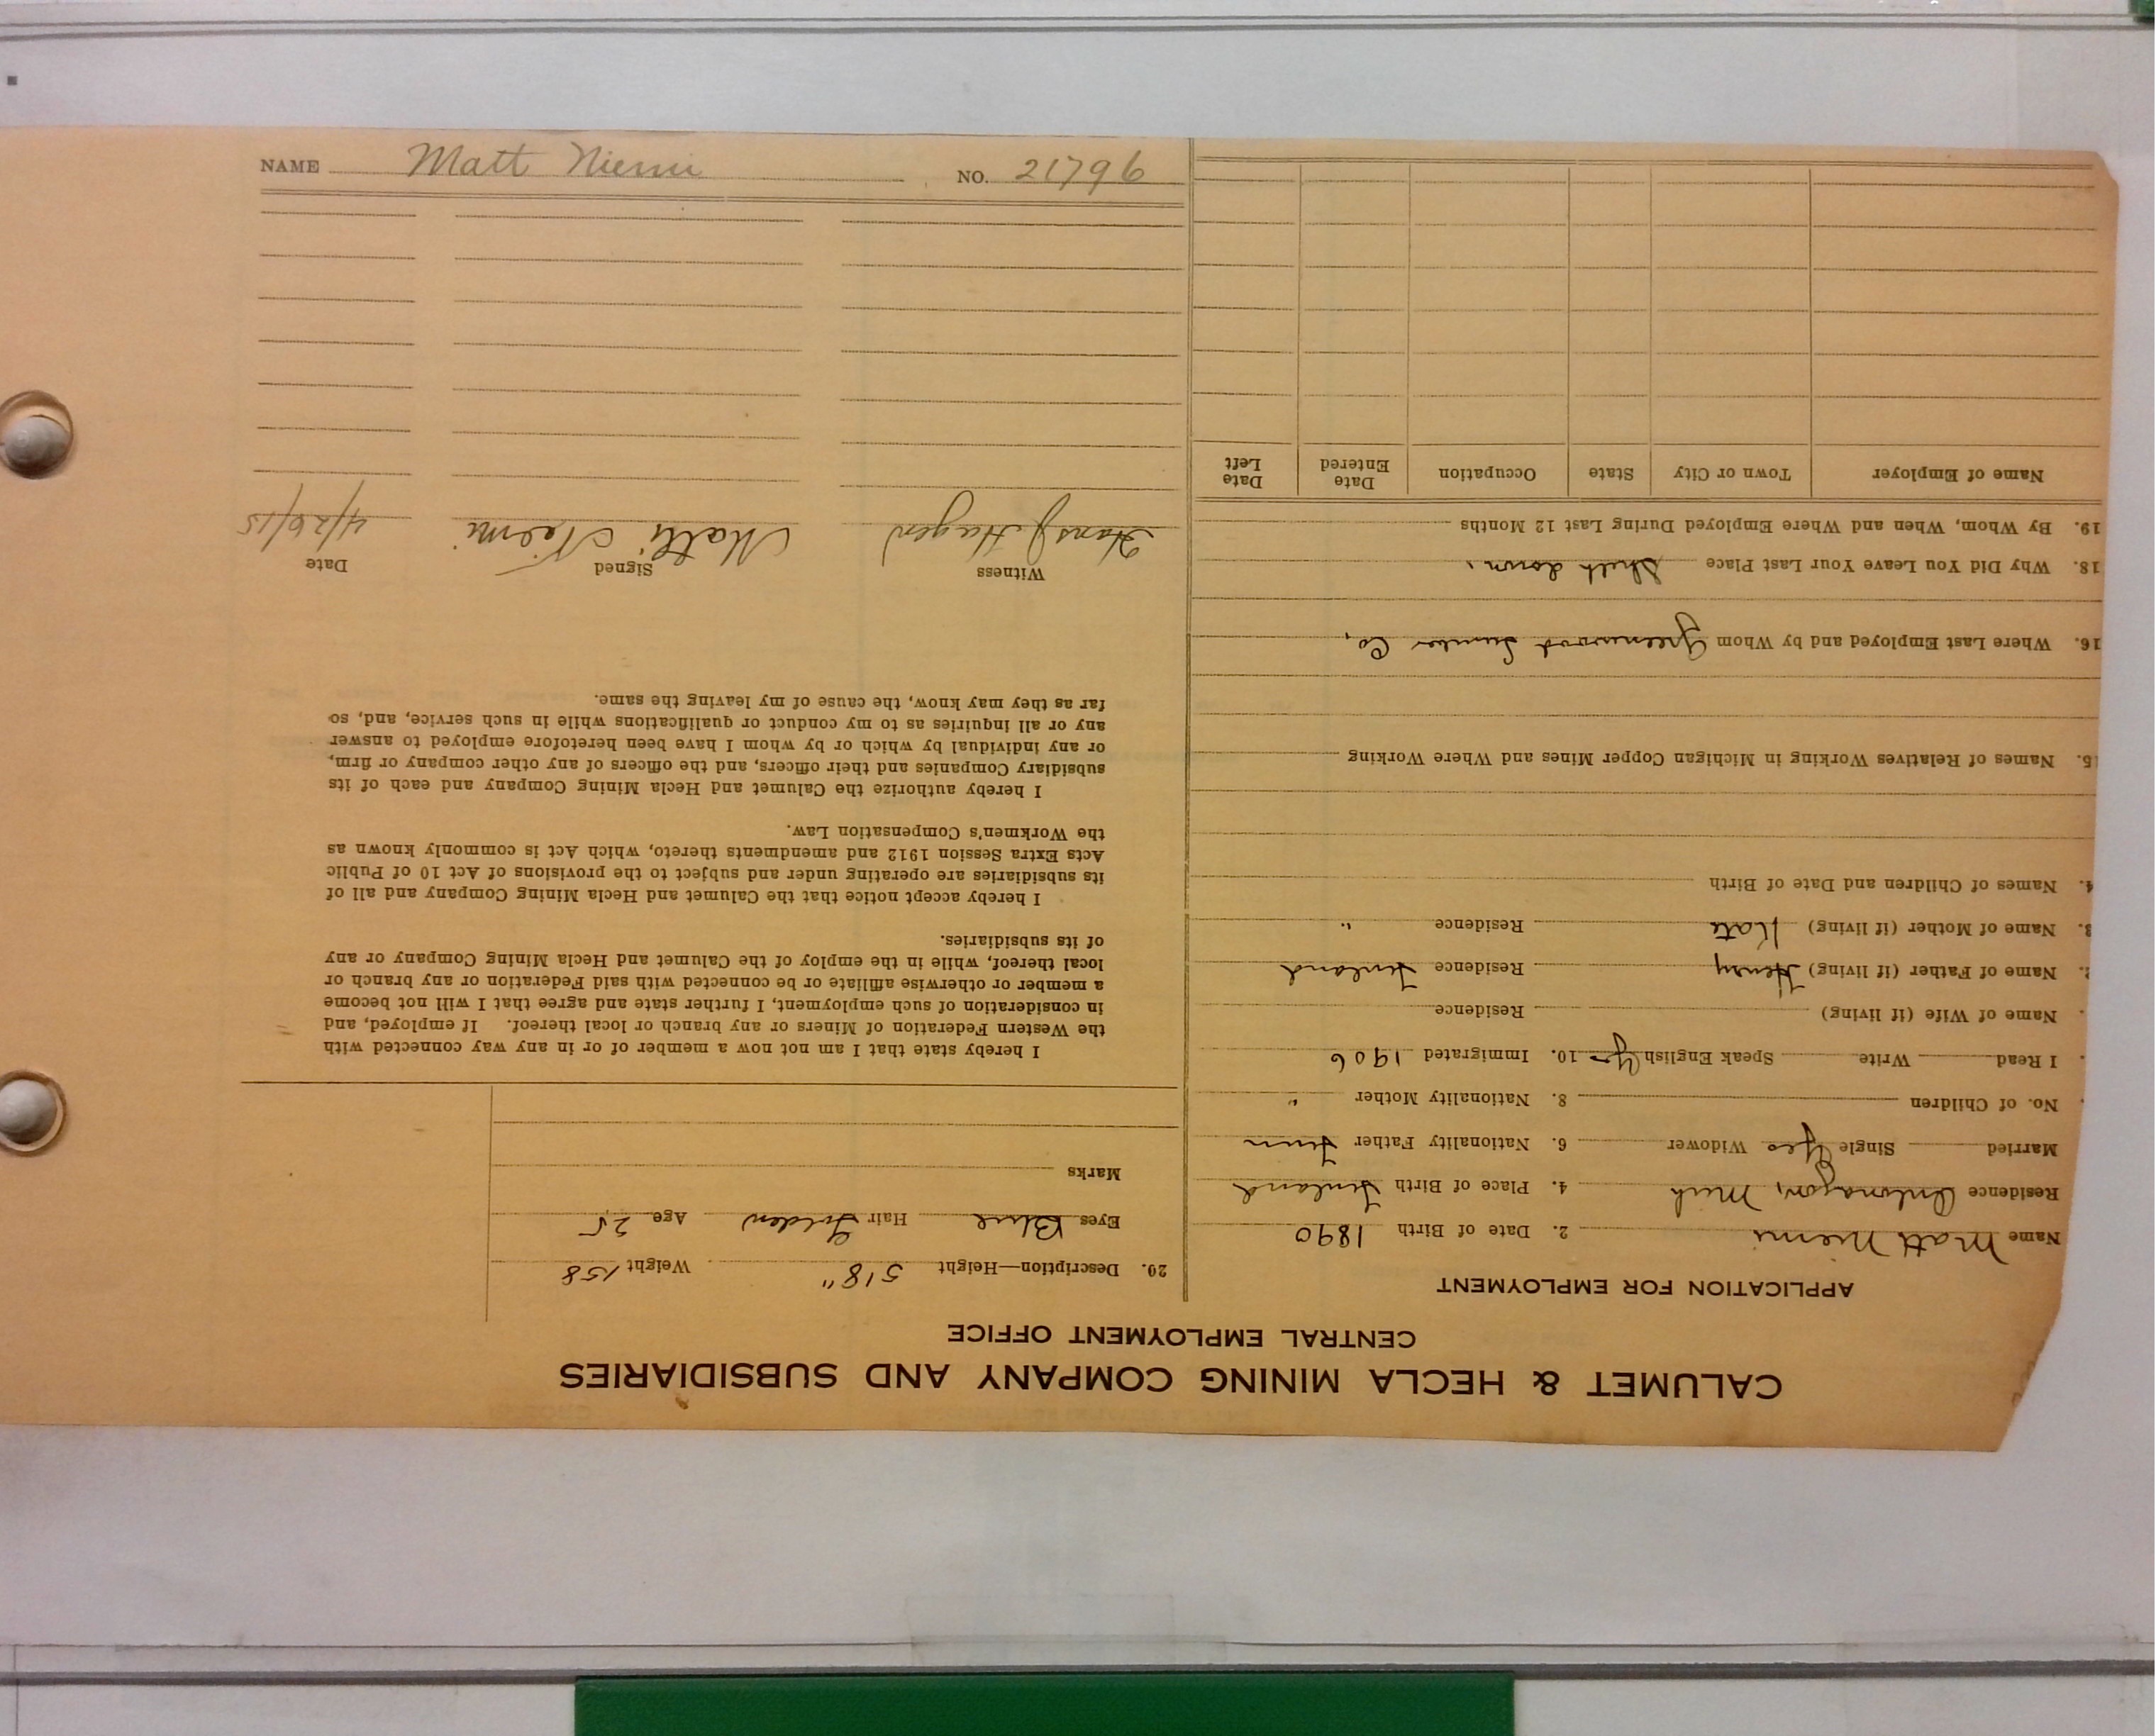 CALUMET & HECLA MINING COMPANY AND SUBSIDIARIES
CENTRAL EMPLOYMENT OFFICE
APPLICATION FOR EMPLOYMENT
Name Matt Niemi 2. Date of Birth 1890
Residence Ontonagon, Mich 4. Place of Birth Finland
Married Single Yes Widower 6. Nationality Father Finn
No. of Children 8. Nationality Mother "
I Read Write Speak English 10. Immigrated 1906
Name of Wife (if living) Residence
2. Name of Father (if living) Henry Residence Finland
3. Name of Mother (if living) Kate Residence "
4. Names of Children and Date of Birth
5. Names of Relatives Working in Michigan Copper Mines and Where Working
16. Where Last Employed and by Whom Greenwood Lumber Co.
18. Why Did You Leave Your Last Place Shut down.
19. By Whom, When and Where Employed During Last 12 Months
Name of Employer Town or City State Occupation Date Entered Date Left
20. Description—Height 5'8" Weight 158
Eyes Blue Hair Golden Age 25
Marks
I hereby state that I am not now a member of or in any way connected with
the Western Federation of Miners or any branch or local thereof. If employed, and
in consideration of such employment, I further state and agree that I will not become
a member or otherwise affiliate or be connected with said Federation or any branch or
local thereof, while in the employ of the Calumet and Hecla Mining Company or any
of its subsidiaries.
I hereby accept notice that the Calumet and Hecla Mining Company and all of
its subsidiaries are operating under and subject to the provisions of Act 10 of Public
Acts Extra Session 1912 and amendments thereto, which Act is commonly known as
the Workmen's Compensation Law.
I hereby authorize the Calumet and Hecla Mining Company and each of its
subsidiary Companies and their officers, and the officers of any other company or firm,
or any individual by which or by whom I have been heretofore employed to answer
any or all inquiries as to my conduct or qualifications while in such service, and, so
far as they may know, the cause of my leaving the same.
Witness Signed Date
Hans J. Hagen Matti Niemi 4/26/15
NAME Matt Niemi NO. 21796